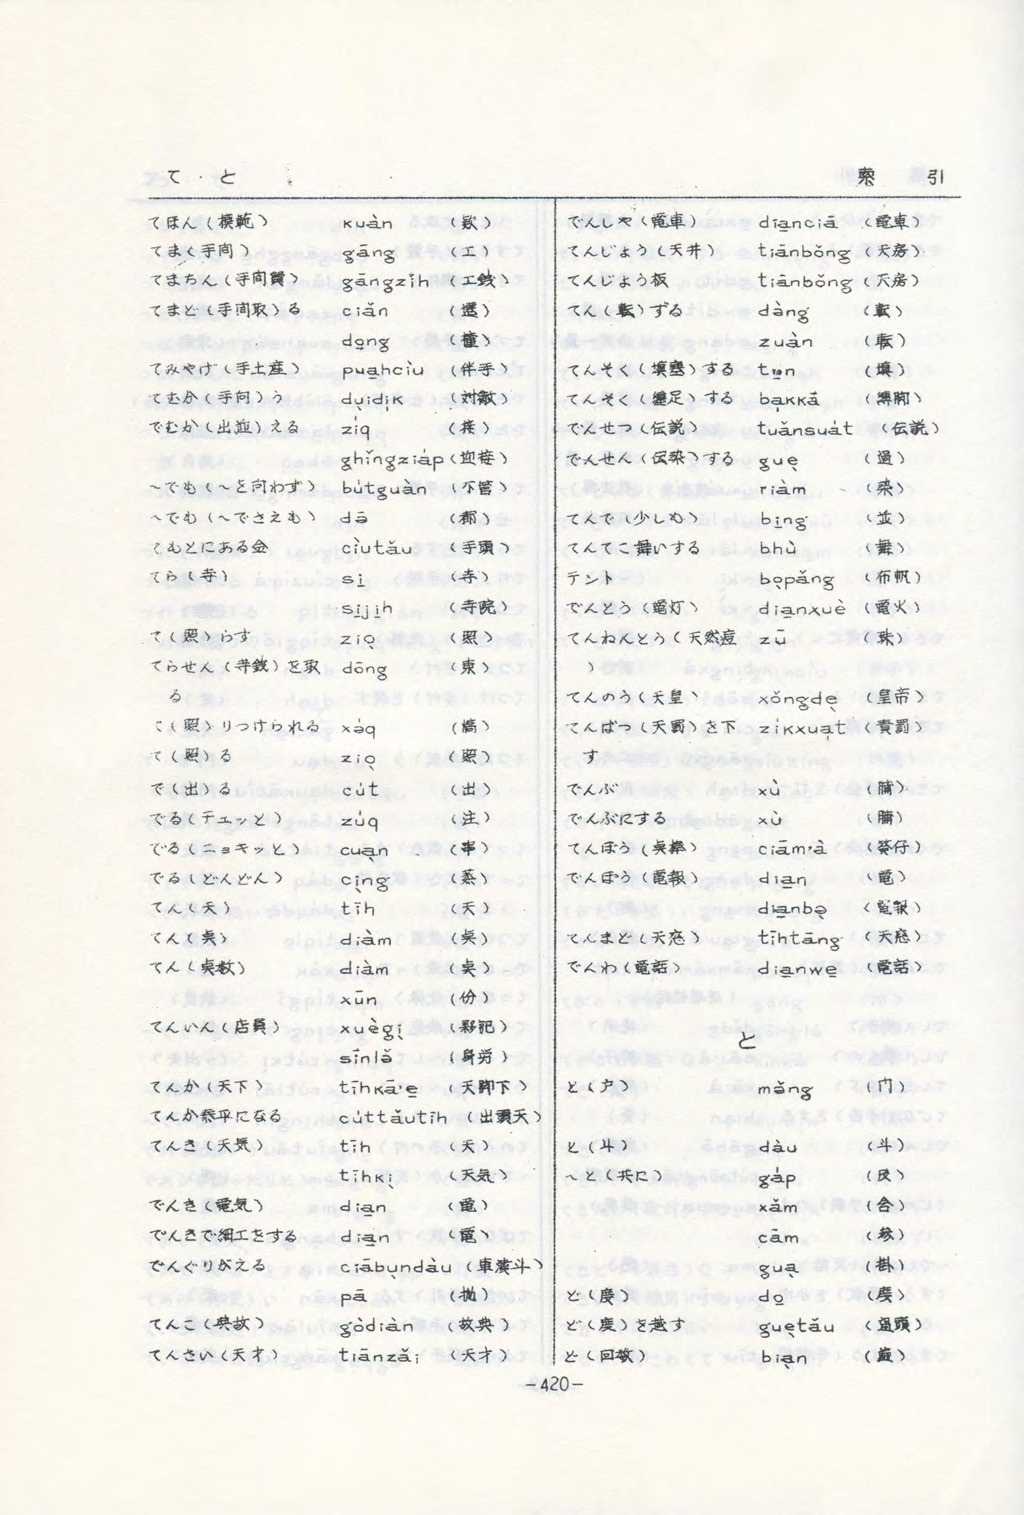 て・と
索 引
てほん(模範) kuàn (款)
てま(手間) gāng (工)
てまちん(手間賃) gāngzîh (工銭)
てまど(手間取)る ciǎn (遷)
dọng (撞)
てみやげ(手土産) pu̱ahciu (伴手)
てむか(手向)う dụidịk (対敵)
でむか(出迎)える ziq (接)
ghǐngziáp (迎接)
〜でも(〜を問わず) bútguàn (不管)
〜でも(〜でさえも) də̄ (都)
てもとにある金 ciùtǎu (手頭)
てら(寺) si̱ (寺)
si̱ji̱h (寺院)
て(照)らす ziọ (照)
てらせん(寺銭)を取 dōng (東)
る
て(照)りつけられる xə̣q (熇)
て(照)る ziọ (照)
で(出)る cút (出)
でる(チュッと) zúq (注)
でる(ニョキッと) cuạn (串)
でる(どんどん) cịng (蒸)
てん(天) tīh (天)
てん(点) diàm (点)
てん(点数) diàm (点)
xūn (份)
てんいん(店員) xuègị (夥記)
sīnlə̌ (身労)
てんか(天下) tīhkā'e̱ (天脚下)
てんか泰平になる cúttǎutīh (出頭天)
てんき(天気) tīh (天)
tīhkị (天気)
でんき(電気) dia̱n (電)
でんきで細工をする dia̱n (電)
でんぐりがえる ciābụndàu (車糞斗)
pā (拋)
てんこ(典故) gòdiàn (故典)
てんさい(天才) tiānzǎi (天才)
でんしゃ(電車) dia̱nciā (電車)
てんじょう(天井) tiānbǒng (天房)
てんじょう板 tiānbǒng (天房)
てん(転)ずる dàng (転)
zuàn (転)
てんそく(填塞)する (填)
てんそく(纏足)する bạkkā (縛脚)
でんせつ(伝説) tuǎnsuát (伝説)
でんせん(伝染)する guẹ (過)
riàm (染)
てんで(少しも) bi̱ng (並)
てんてこ舞いする bhù (舞)
テント bọpǎng (布帆)
でんとう(電灯) dia̱nxuè (電火)
てんねんとう(天然痘 zū (珠)
)
てんのう(天皇) xǒngdẹ (皇帝)
てんばつ(天罰)を下 zíkxua̱t (責罰)
す
でんぶ xù (脯)
でんぶにする xù (脯)
てんぼう(呉擦) ciām'à (簽仔)
でんぽう(電報) dia̱n (電)
dia̱nbə̣ (電報)
てんまど(天窓) tīhtāng (天窓)
でんわ(電話) dia̱nwe̱ (電話)
と
と(戸) mǎng (门)
と(斗) dàu (斗)
〜と(共に) gáp (及)
xǎm (合)
cām (参)
guạ (掛)
ど(度) do̱ (度)
ど(度)を越す guẹtǎu (過頭)
ど(回数) biạn (遍)
-420-